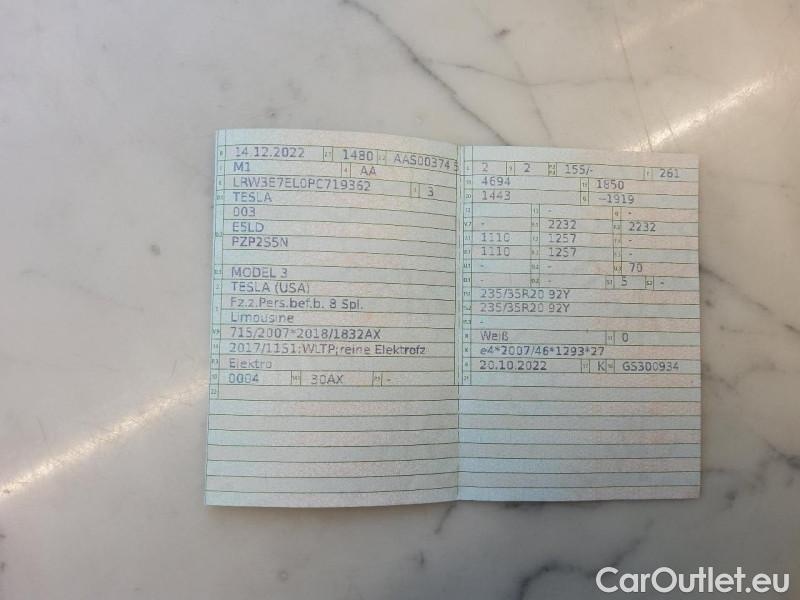 14.12.2022 1480 AAS00374 5
M1 AA
LRW3E7EL0PC719362 3
TESLA
003
E5LD
PZP2S5N
MODEL 3
TESLA (USA)
Fz.z.Pers.bef.b. 8 Spl.
Limousine
715/2007*2018/1832AX
2017/1151;WLTP;reine Elektrofz
Elektro
0004 30AX -
2 2 155/- 261
4694 1850
1443 -1919
- - -
- 2232 2232
1110 1257 -
1110 1257 -
- - 70
- - 5 -
235/35R20 92Y
235/35R20 92Y
-
Weiß 0
e4*2007/46*1293*27
20.10.2022 K GS300934
CarOutlet.eu